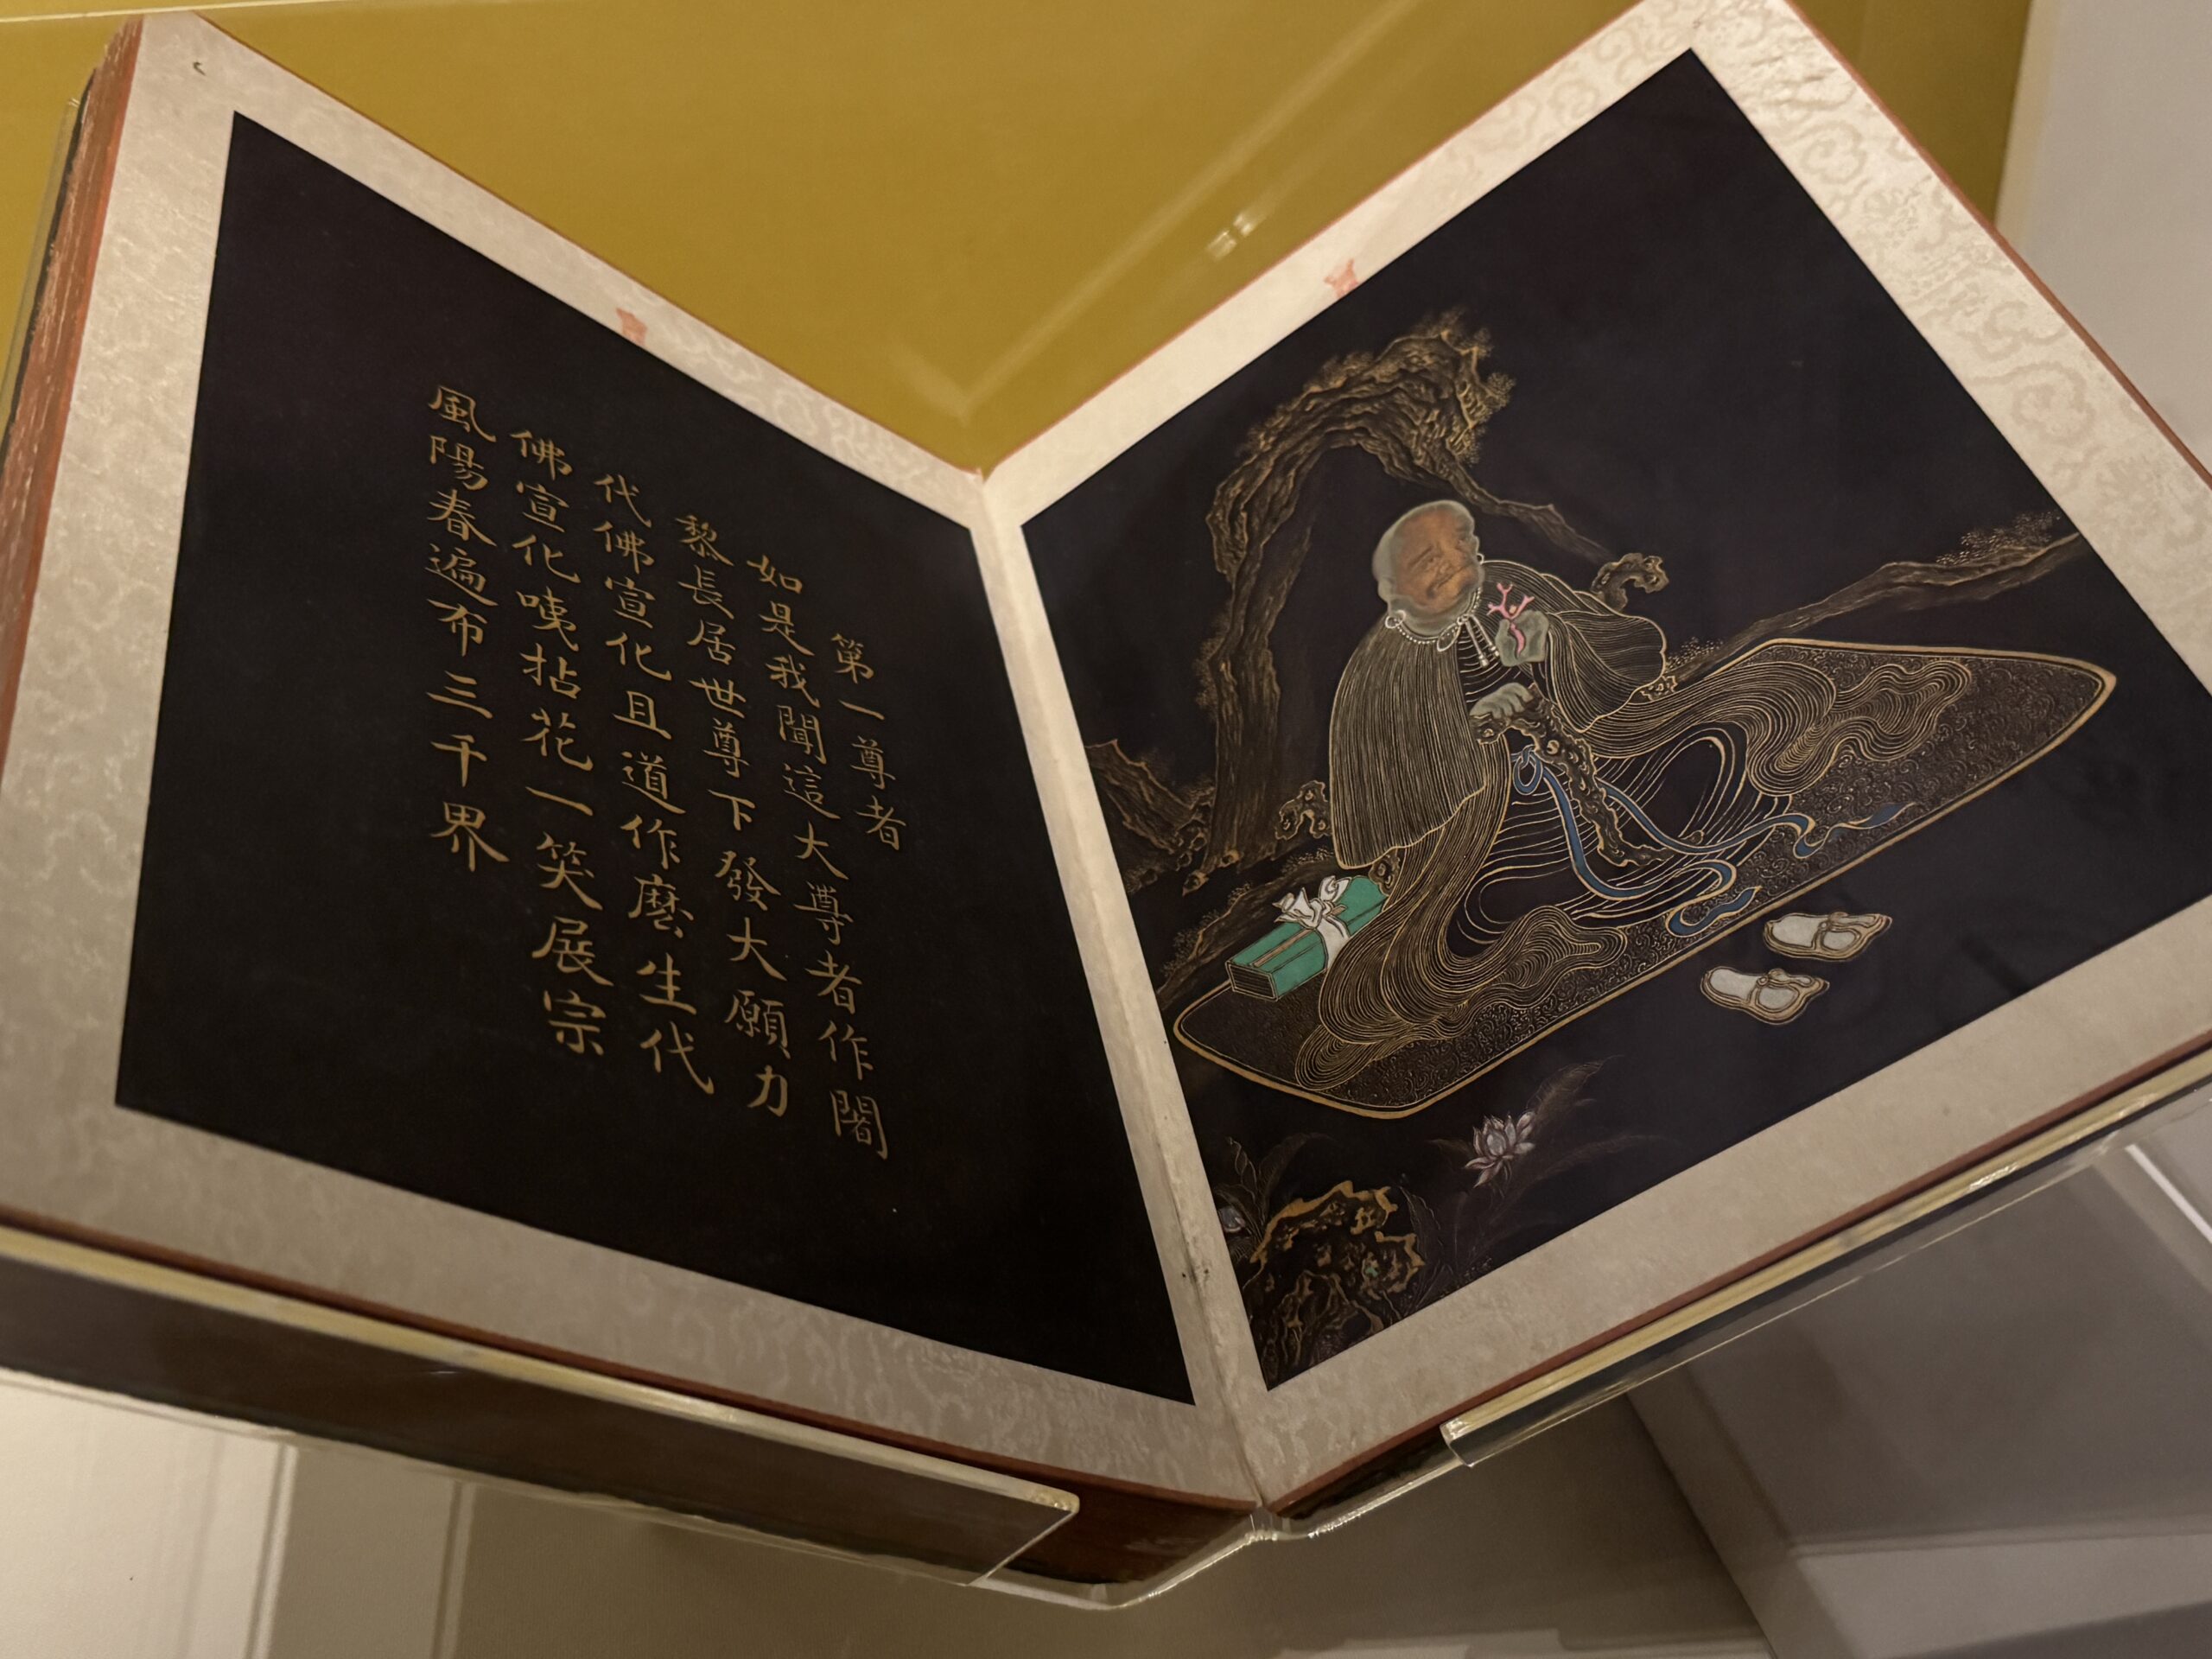 第一尊者
如是我聞這大尊者作闍
黎長居世尊下發大願力
代佛宣化且道作麽生代
佛宣化咦拈花一笑展宗
風陽春遍布三千界